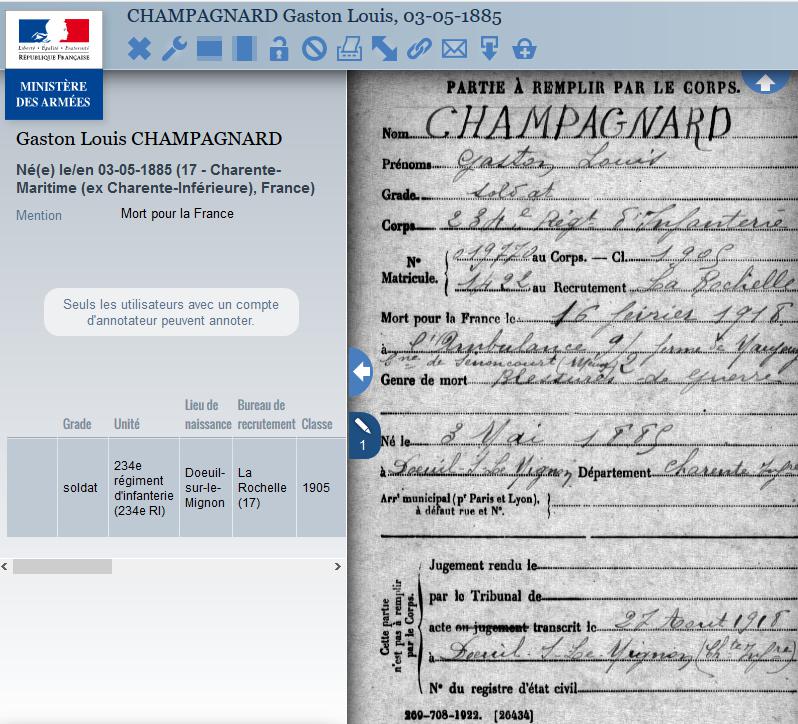 CHAMPAGNARD Gaston Louis, 03-05-1885
Liberté • Égalité • Fraternité
RÉPUBLIQUE FRANÇAISE
MINISTÈRE
DES ARMÉES
Gaston Louis CHAMPAGNARD
Né(e) le/en 03-05-1885 (17 - Charente-
Maritime (ex Charente-Inférieure), France)
Mention Mort pour la France
Seuls les utilisateurs avec un compte
d'annotateur peuvent annoter.
Grade Unité Lieu de naissance Bureau de recrutement Classe
soldat 234e régiment d'infanterie (234e RI) Doeuil-sur-le-Mignon La Rochelle (17) 1905
1
PARTIE À REMPLIR PAR LE CORPS.
Nom CHAMPAGNARD
Prénoms Gaston Louis
Grade soldat
Corps 234e Régt d'Infanterie
N° Matricule. 019770 au Corps. — Cl. 1905
1492 au Recrutement La Rochelle
Mort pour la France le 16 février 1918
à l'Ambulance 9/ ferme de
de Senoncourt (Meuse) 2
Genre de mort Blessures de guerre
Né le 3 Mai 1885
à Doeuil-S-Le Mignon Département Charente Infre
Arrt municipal (pr Paris et Lyon),
à défaut rue et N°.
Cette partie
n'est pas à remplir
par le Corps.
Jugement rendu le
par le Tribunal de
acte ou jugement transcrit le 27 Aout 1918
à Doeuil-S-Le Mignon (Chte Infre)
N° du registre d'état civil
269-708-1922. [26434]